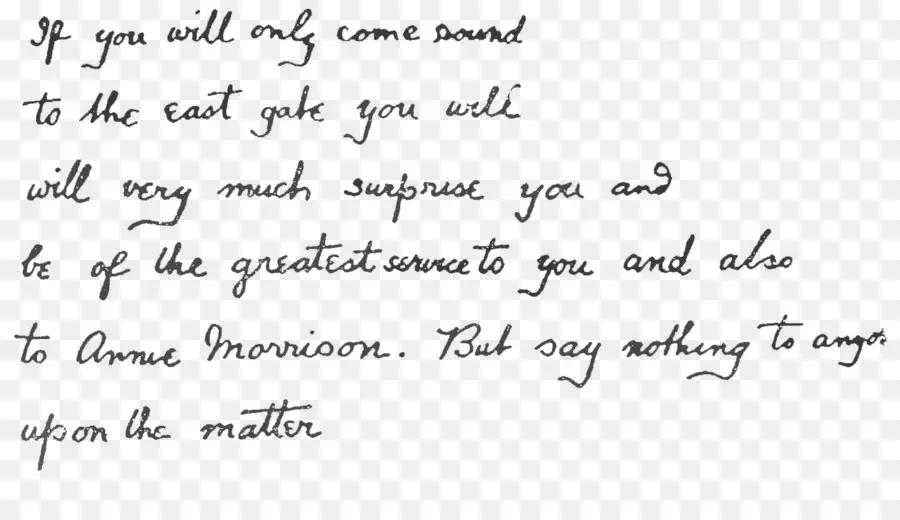 If you will only come sound
to the east gate you will
will very much surprise you and
be of the greatest service to you and also
to Annie Morrison. But say nothing to
upon the matter